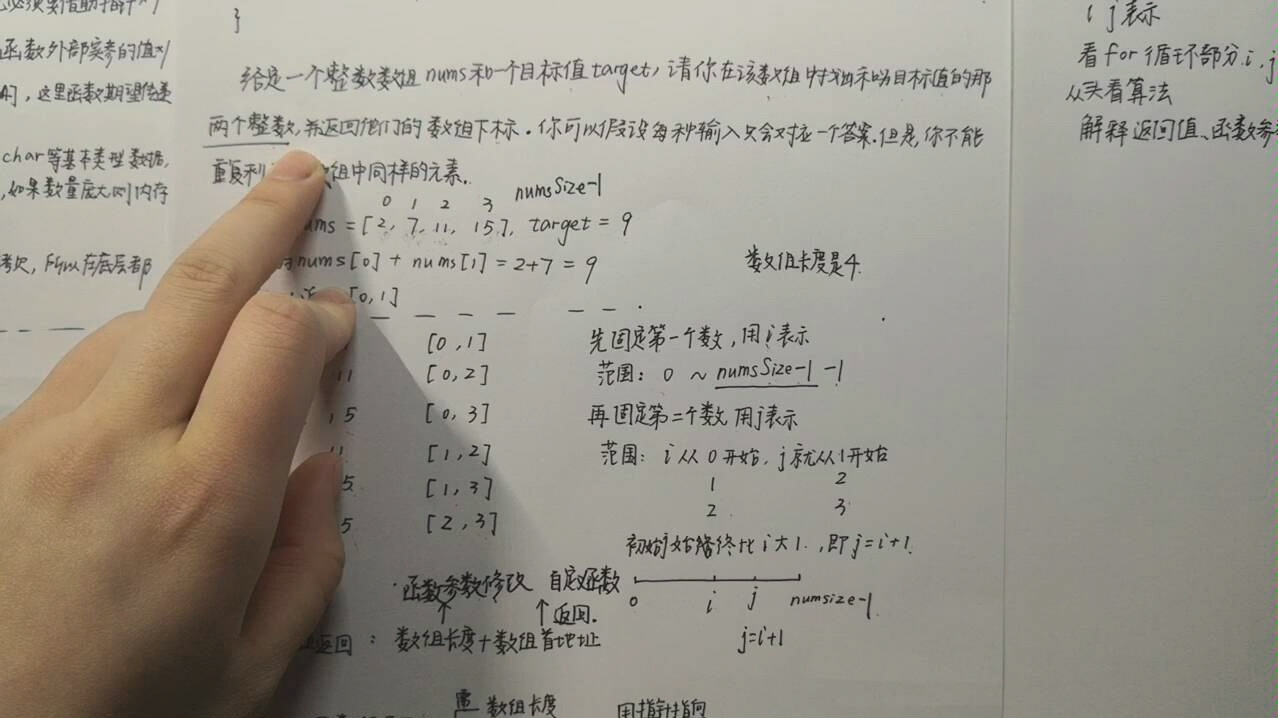 函数外部实参的值*/
，这里函数期望传递
char等基本类型数据，
，如果数量庞大则内存
，所以在底层都
}
给定一个整数数组nums和一个目标值target，请你在该数组中找出和为目标值的那
两个整数，并返回他们的数组下标。你可以假设每种输入只会对应一个答案.但是,你不能
重复利 数组中同样的元素.
0 1 2 3 numsSize-1
ums = [2, 7, 11, 15], target = 9
nums[0] + nums[1] = 2+7 = 9
数组长度是4.
[0,1]
[0,1]
11 [0,2]
15 [0,3]
11 [1,2]
5 [1,3]
5 [2,3]
先固定第一个数,用i表示
范围: 0 ~ numsSize-1 -1
再固定第二个数 用j表示
范围: i从0开始, j就从1开始
1 2
2 3
初始j始终比i大1.,即j=i+1.
0 i j numsize-1
j=i+1
·函数参数修改 自定义函数
↑ ↑返回.
返回: 数组长度+数组首地址
数组长度 用指针指向
i j表示
看for循环部分i,j
从头看算法
解释返回值、函数参